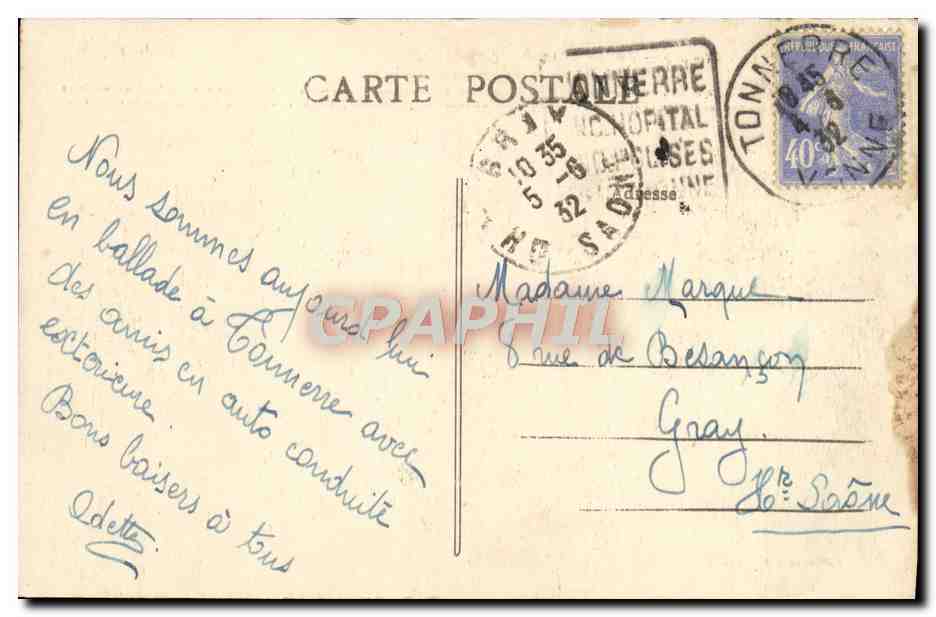 CARTE POSTALE
TONNERRE
HOPITAL
TONNERRE
18 45
4 - 6
32
YONNE
REPUBLIQUE FRANCAISE
40 c
GRAY
10 35
5 - 6
32
HTE SAONE
Adresse
Nous sommes aujourd'hui
en ballade à Tonnerre avec
des amis en auto conduite
extérieure.
Bons baisers à tous
Odette
Madame Marque
8 rue de Besançon
Gray.
Hte Saône
CPAPHIL